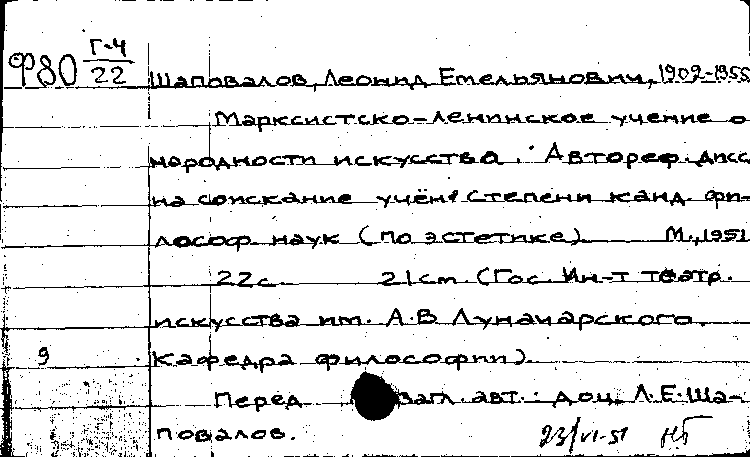 Ф80 Г-4/22
Шаповалов, Леонид Емельянович, 1902-1955
Марксистско-ленинское учение о
народности искусства. Автореф. дисс
на соискание учён. степени канд. фи-
лософ. наук (по эстетике) М., 1951
22с. 21см. (Гос. Ин-т театр.
искусства им. А.В Луначарского.
9 Кафедра философии).
Перед загл. авт.: доц. Л.Е.Ша-
повалов.
23/VI-51